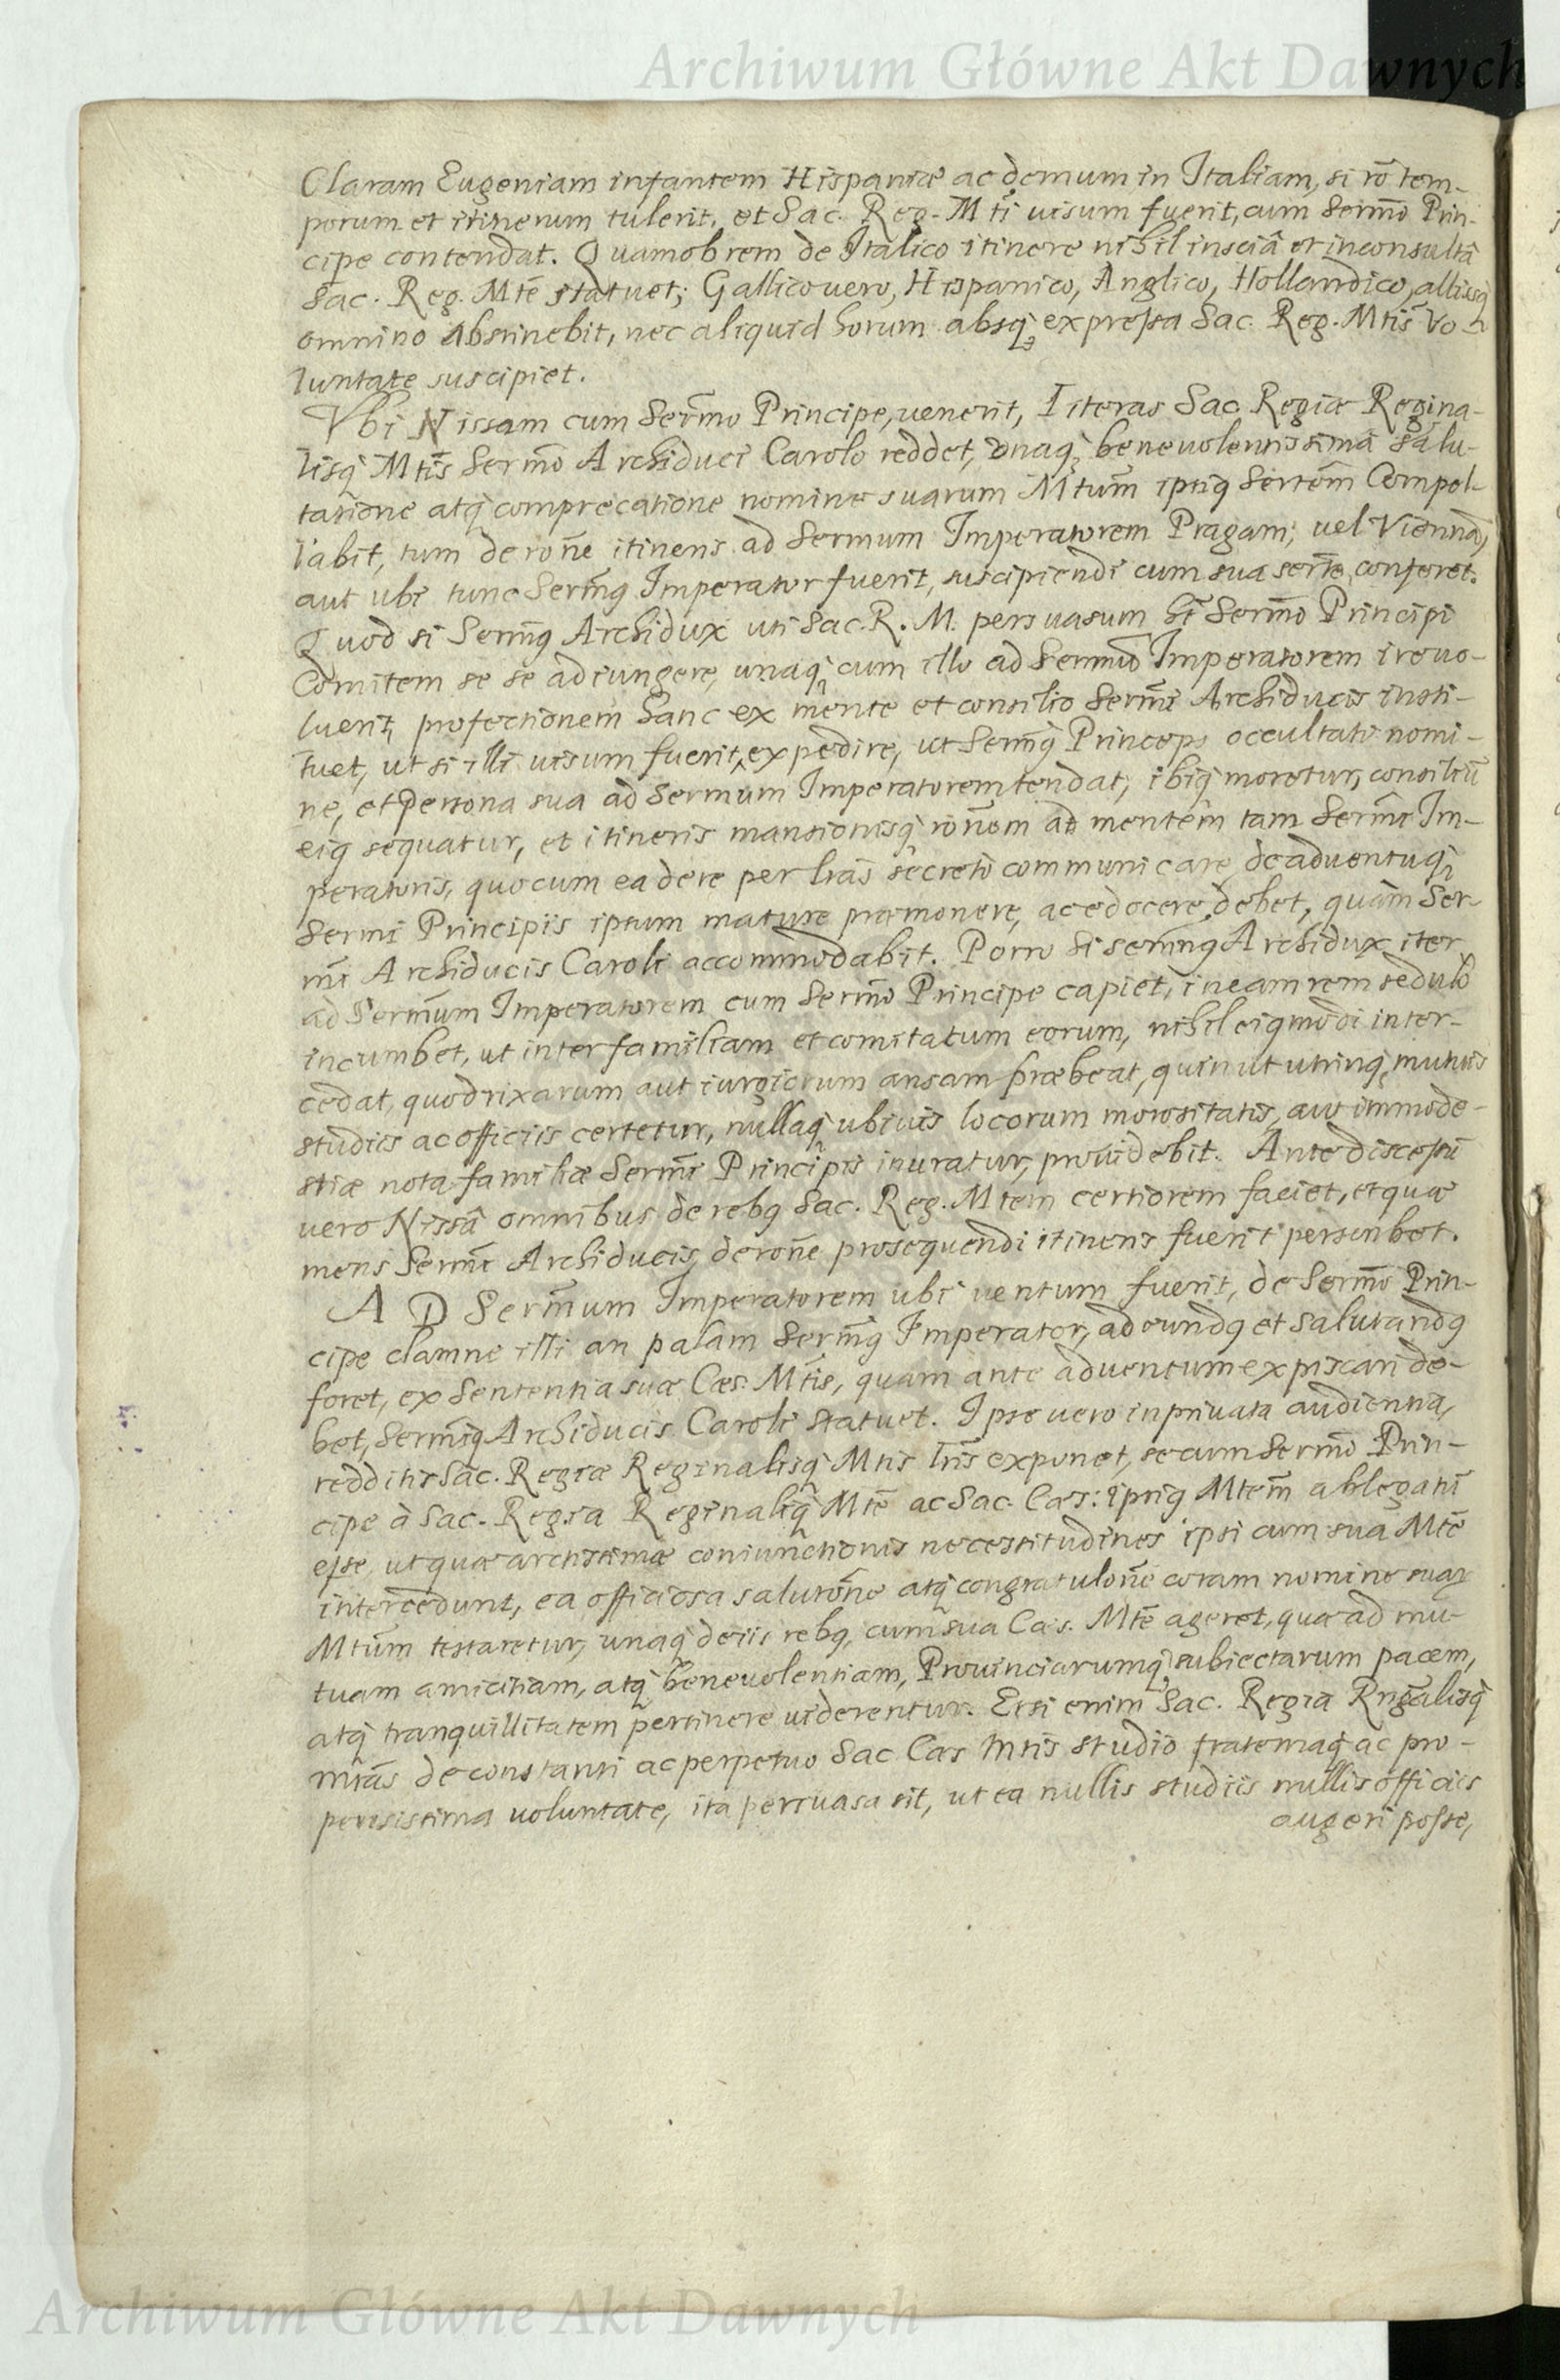 Archiwum Główne Akt Dawnych
Claram Eugeniam infantem Hispaniæ ac demum in Italiam, si rō tem-
porum et itinerum tulerit, et Sac. Reg. Mti uisum fuerit, cum Sermō Prin-
cipe contendat. Quamobrem de Italico itinere nihil insciâ et inconsultâ
Sac. Reg. Mtē statuet; Gallico uero, Hispanico, Anglico, Hollandico, alliisq̨
omnino abstinebit, nec aliquid horum absq̨ expressa Sac. Reg. Mtis Vo-
luntate suscipiet.
Vbi Nissam cum Sermo Principe, uenerit, literas Sac. Regiæ Regina-
lisq̨ Mtis Sermō Archiduci Carolo reddet, unaq̨ beneuolentissimâ salu-
tatione atq̨ comprecatione nomine suarum Mtum ipsiq Sertem Compel-
labit, tum de rone itineris ad Sermum Imperatorem Pragam; uel Viennā,
aut ubi tunc Sermq Imperator fuerit, suscipiendi cum sua serte conferet.
Quod si Sermq Archidux uti Sac. R. M. persuasum Sermō Principi
Comitem se se adiungere, unaq̨ cum illo ad Sermum Imperatorem ire uo-
luerit, profectionem hanc ex mente et consilio Sermi Archiducis insti-
tuet, ut si illi uisum fuerit, expedire, ut Sermq Princeps occultato nomi-
ne, et persona sua ad Sermum Imperatorem tendat, ibiq̨ moretur, consiliū
eiq sequatur, et itineris mansionisq̨ ronem ad mentem tam Sermi Im-
peratoris, quocum ea de re per lras secreto communicare, de aduentuq̨
Sermi Principiis ipsum mature præmonere, ac edocere, debet, quàm Ser-
mi Archiducis Caroli accommodabit. Porro si sermq Archidux iter
ad Sermum Imperatorem cum Sermō Principe capiet, in eam rem sedulo
incumbet, ut inter familiam et comitatum eorum, nihil eiqmodi inter-
cedat, quod rixarum aut iurgiorum ansam præbeat, quin ut utrinq̨ mutuis
studiis ac officiis certetur, nullaq̨ ubiuis locorum morositatis, aut immode-
stiæ nota familiæ Sermi Principis inuratur, prouidebit. Ante discessū
uero Nissâ omnibus de rebq Sac. Reg. Mtem certiorem faciet, et quæ
mens Sermi Archiducis de rone prosequendi itineris fuerit perscribet.
AD Sermum Imperatorem ubi uentum fuerit, de Sermō Prin-
cipe clamne illi an palam Sermq Imperator, adeundq et salutandq
foret, ex sententia suæ Cæs. Mtis, quam ante aduentum expiscari de-
bet, Sermiq Archiducis Caroli statuet. Ipse uero in priuata audientia,
redditis Sac. Regiæ Reginalisq̨ Mtis lris exponet, se cum Sermō Prin-
cipe à Sac. Regia Reginaliq̨ Mte ac Sac. Cæs: ipsiq Mtem ablegatū
esse, ut quæ arctissimæ coniunctionis necessitudines ipsi cum sua Mtē
intercedunt, ea officiosa salutone atq̨ congratulone coram nomine suar
Mtum testaretur, unaq̨ de iis rebq, cum sua Cæs. Mtē ageret, quæ ad mu-
tuam amicitiam, atq̨ beneuolentiam, Prouinciarumq̨ subiectarum pacem,
atq̨ tranquillitatem pertinere uiderentur. Etsi enim Sac. Regia Rngalisq̨
mtas de constanti ac perpetuo Sac Cæs Mtis studio fraternaq̨ ac pro-
pensissima voluntate, ita persuasa sit, ut ea nullis studiis nullis officiis
augeri posse,
Archiwum Główne Akt Dawnych